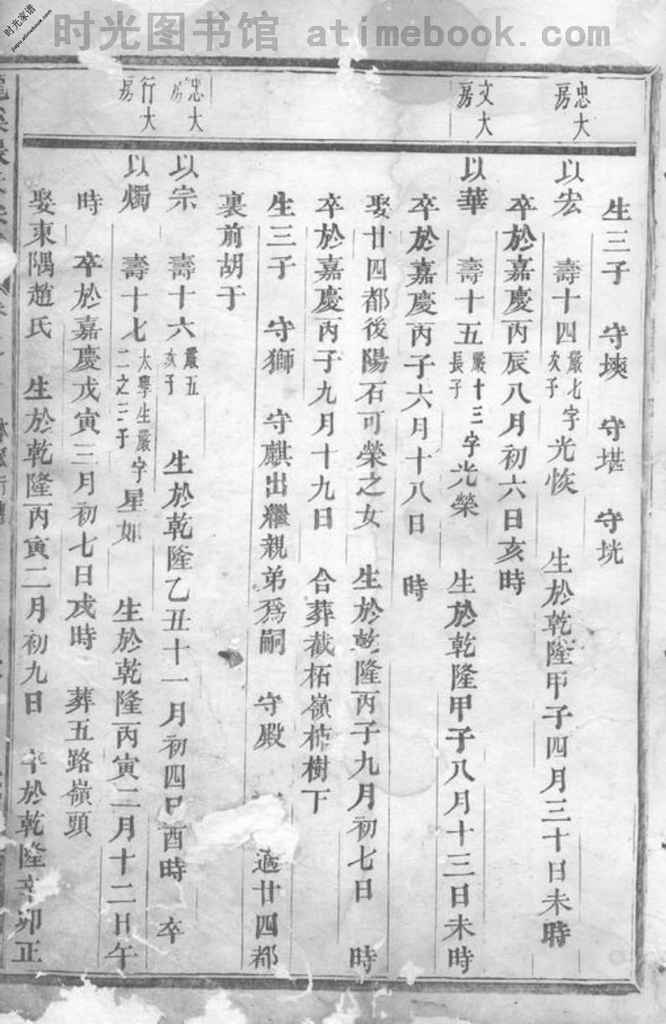 时光图书馆 atimebook.com
时光家谱
忠大房
文大房
忠大房
行大房
生三子 守墺 守堪 守垙
以宏 壽十四 嚴七次子 字光恢 生於乾隆甲子四月三十日未時
卒於嘉慶丙辰八月初六日亥時
以華 壽十五 嚴十三長子 字光榮 生於乾隆甲子八月十三日未時
卒於嘉慶丙子六月十八日 時
娶廿四都後陽石可榮之女 生於乾隆丙子九月初七日 時
卒於嘉慶丙子九月十九日 合葬截柘嶺柿樹下
生三子 守獅 守麒出繼親弟爲嗣 守殿 適廿四都
裏前胡于
以宗 壽十六 嚴五次子 生於乾隆乙丑十一月初四日酉時 卒
以燭 壽十七 太學生嚴二之三子 字星如 生於乾隆丙寅二月十二日午
時 卒於嘉慶戊寅三月初七日戌時 葬五路嶺頭
娶東隅趙氏 生於乾隆丙寅二月初九日 卒於乾隆辛卯正